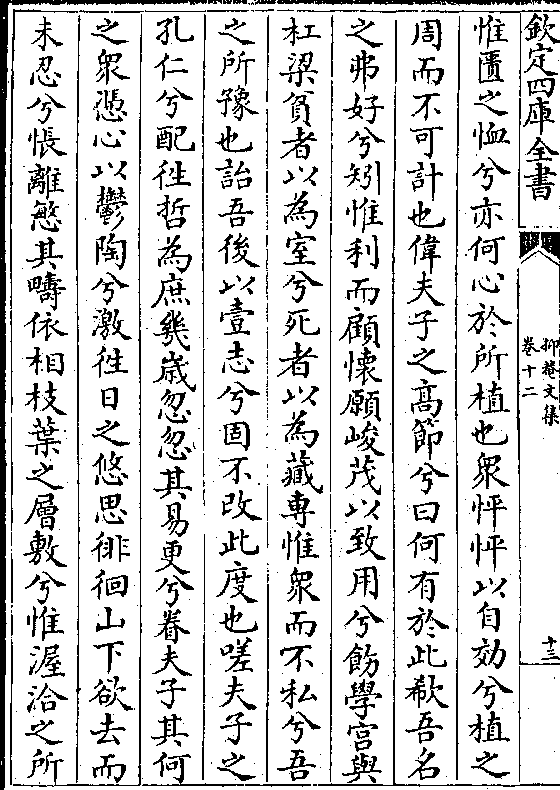 欽定四庫全書
抑菴文集
卷十二
十三
惟匱之恤兮亦何心於所植也衆怦怦以自効兮植之
周而不可計也偉夫子之髙節兮曰何有於此欷吾名
之弗好兮矧惟利而顧懷願峻茂以致用兮飭學宫與
杠梁貧者以為室兮死者以為藏專惟衆而不私兮吾
之所豫也詒吾後以壹志兮固不改此度也嗟夫子之
孔仁兮配徃哲為庶幾嵗忽忽其易更兮眷夫子其何
之衆憑心以鬱陶兮激徃日之悠思徘徊山下欲去而
未忍兮悵離慜其疇依相枝葉之層敷兮惟渥洽之所